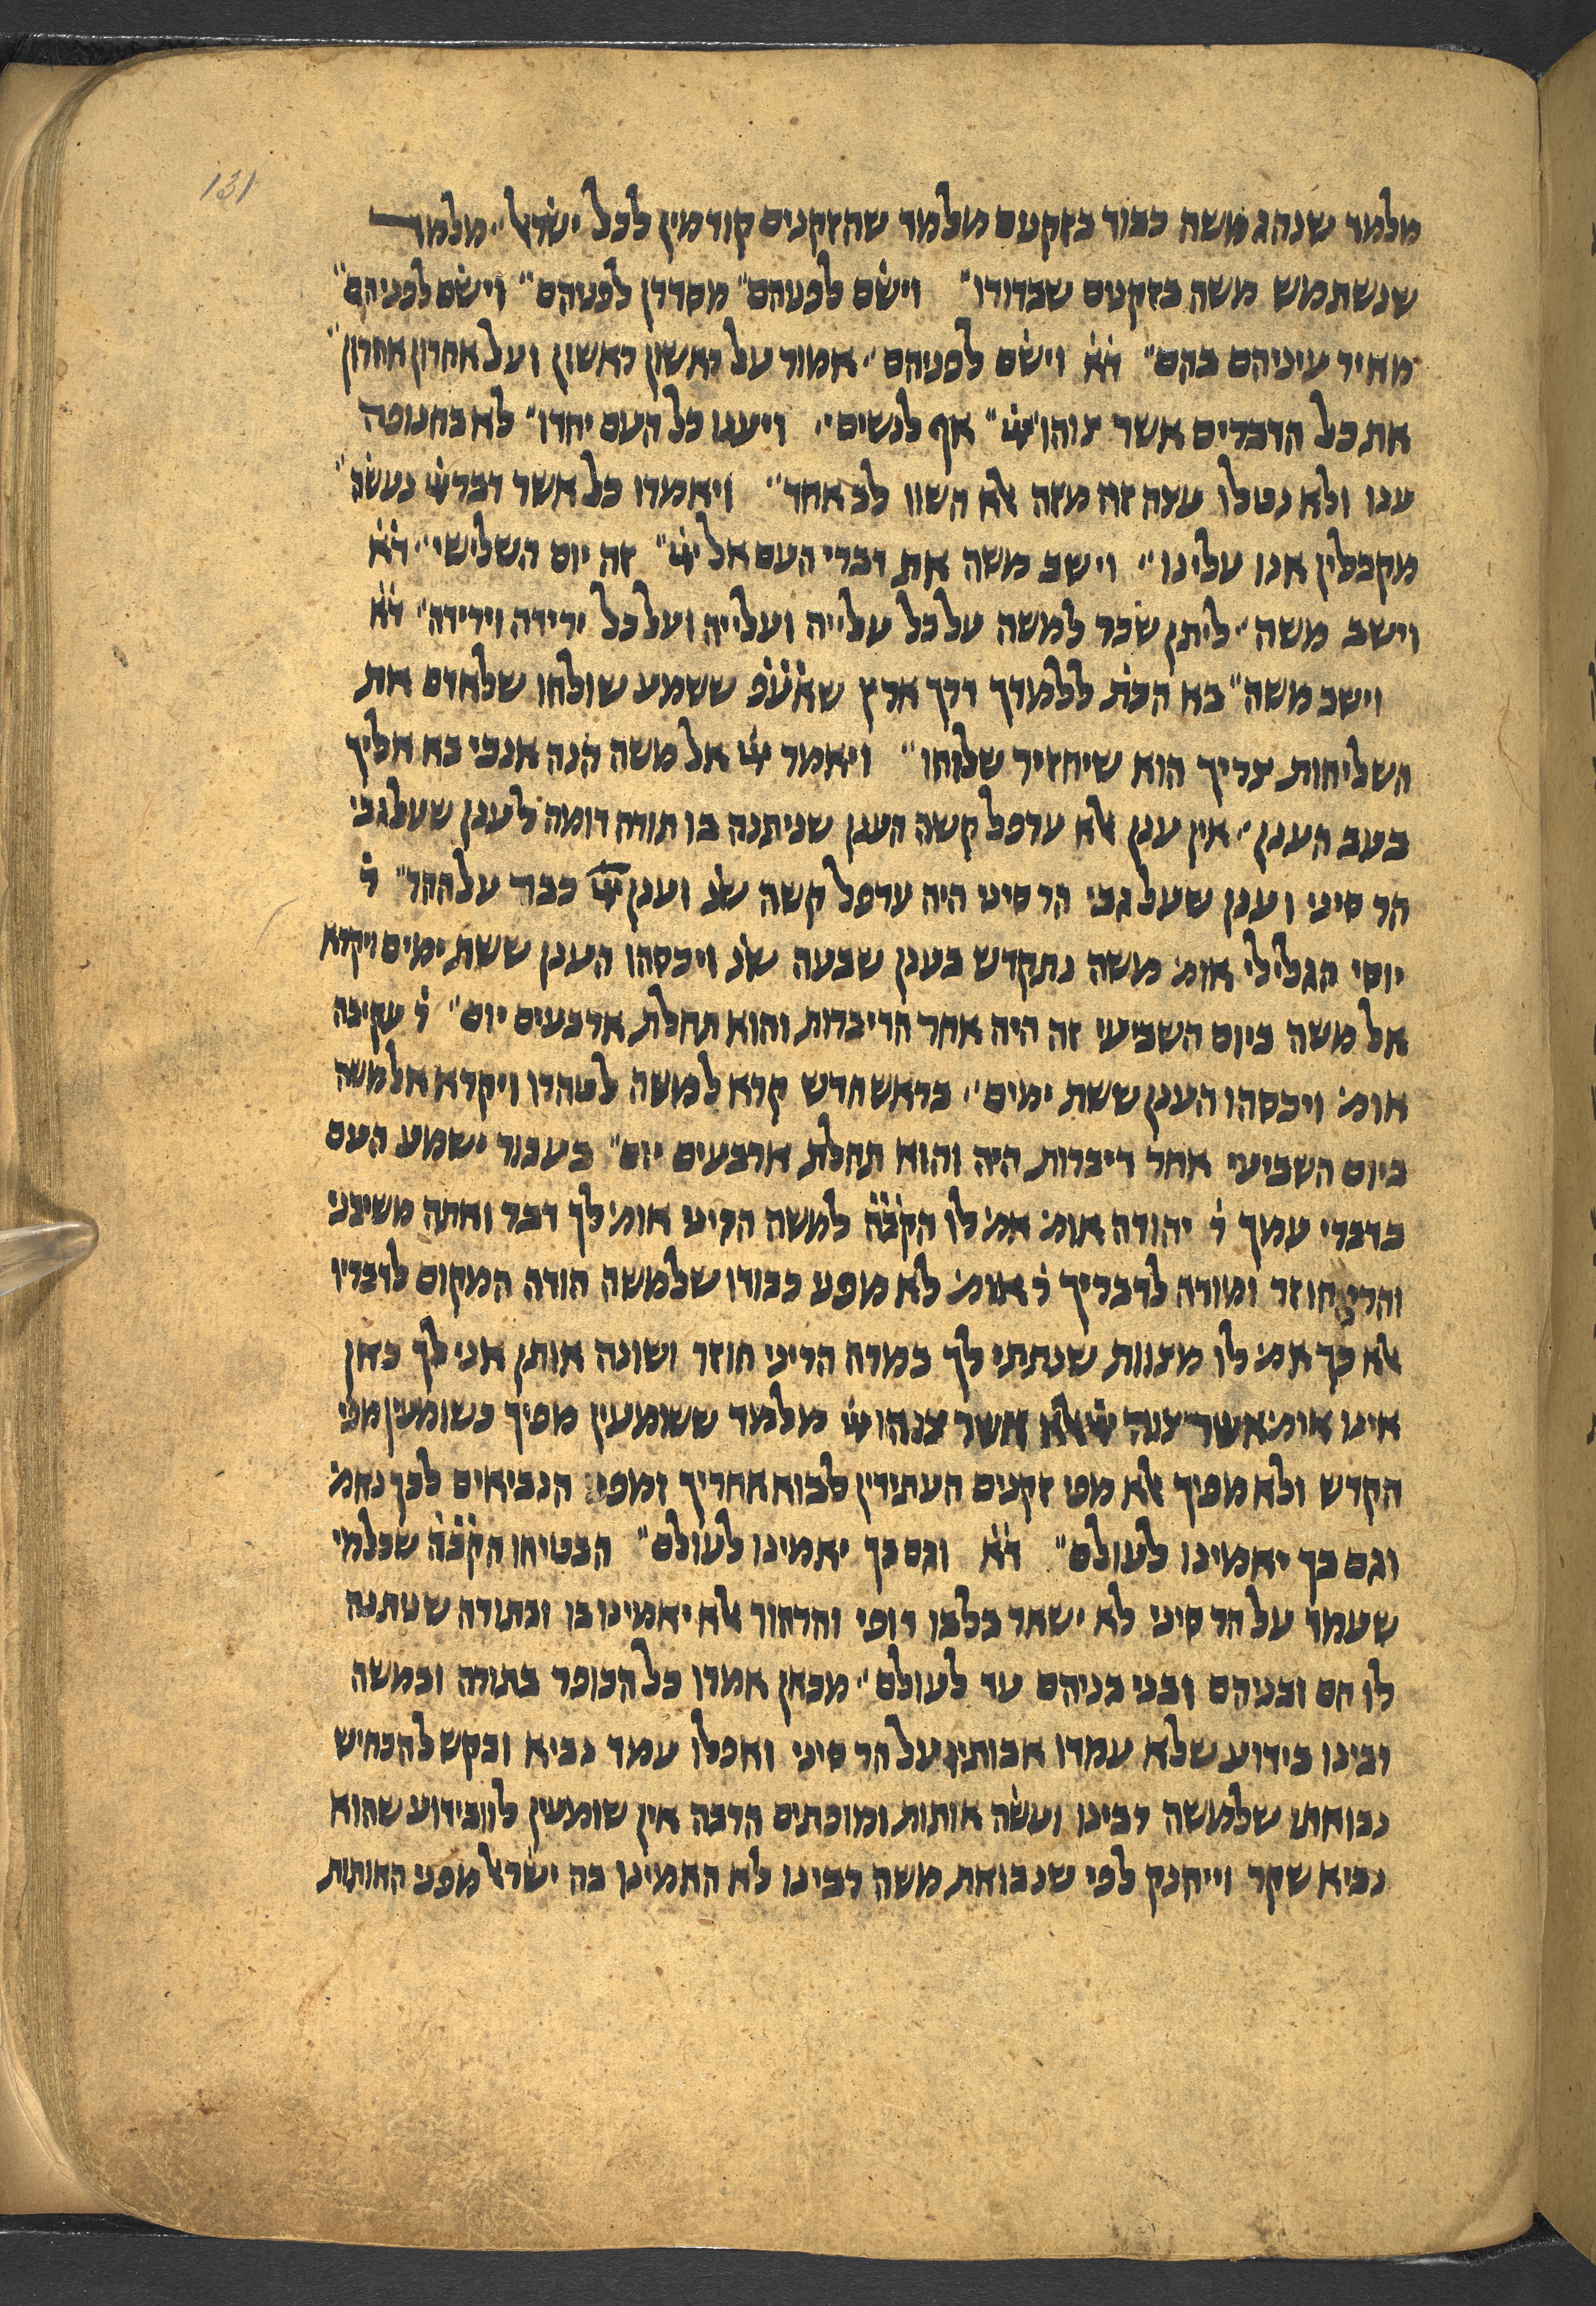 131
מלמד שנהג משה כבוד בזקנים מלמד שהזקנים קודמין לכל ישׂרׄ״ מלמד
שנשתמש משה בזקנים שבדורו״ וישׂם לפניהם״ מסדרן לפניהם״ וישׂם לפניהם״
מאיר עיניהם בהם״ דׄאׄ וישׂם לפניהם״ אמור על ראשון ראשון ועל אחרון אחרון״
את כל הדברים אשר צוהו ייי״ אף לנשים״ ויענו כל העם יחדו״ לא בחנופה
ענו ולא נטלו עצה זה מזה אלא השוו לב אחד״ ויאמרו כל אשר דבר ייי נעשׂה״
מקבלין אנו עלינו״ וישב משה את דברי העם אל ייי״ זה יום השלישי״ דׄאׄ
וישב משה״ ליתן שׂכר למשה על כל עלייה ועלייה ועל כל ירידה וירידה״ דׄאׄ
וישב משה״ בא הכתׄ ללמדך דרך ארץ שאׄעׄפׄ ששמע שולחו שלאדם את
השליחות צריך הוא שיחזיר שלוחו״ ויאמר ייי אל משה הנה אנכי בא אליך
בעב הענן״ אין ענן אלא ערפל קשה הענן שניתנה בו תורה דומה לענן שעל גבי
הר סיני וענן שעל גבי הר סיני היה ערפל קשה שׄנׄ וענן ייי כבד על ההר״ רׄ
יוסי הגלילי אומׄ משה נתקדש בענן שבעה שׄנׄ ויכסהו הענן ששת ימים ויקרא
אל משה ביום השביעי זה היה אחר הדיברות והוא תחלת ארבעים יום״ רׄ עקיבה
אומׄ ויכסהו הענן ששת ימים״ בראש חדש קרא למשה לטהרו ויקרא אל משה
ביום השביעי אחר דיברות היה והוא תחלת ארבעים יום״ בעבור ישמע העם
בדברי עמך רׄ יהודה אומׄ אמׄ לו הקׄבׄהׄ למשה הריני אומׄ לך דבר ואתה משיבני
והריני חוזר ומודה לדבריך רׄ אומׄ לא מפני כבודו שלמשה הודה המקום לדבריו
אלא כך אמׄ לו מצוות שנתתי לך במרה הריני חוזר ושונה אותן אני לך כאן
אינו אומׄ אשר צוה ייי אלא אשר צוהו ייי מלמד ששומעין מפיך כשומעין מפי
הקדש ולא מפיך אלא מפי זקנים העתידין לבוא אחריך ומפי הנביאים לכך נאמׄ
וגם בך יאמינו לעולם״ דׄאׄ וגם בך יאמינו לעולם״ הבטיחו הקׄבׄהׄ שכלמי
שעמד על הר סיני לא ישאר בלבו דופי והרהור אלא יאמינו בו ובתורה שנתנה
לו הם ובניהם ובני בניהם עד לעולם״ מכאן אמרו כל הכופר בתורה ובמשה
רבינו בידוע שלא עמדו אבותיו על הר סיני ואפלו עמד נביא ובקש להכחיש
נבואתו שלמשה רבינו ועשׂה אותות ומופתים הרבה אין שומעין לו ובידוע שהוא
נביא שקר וייחנק לפי שנבואת משה רבינו לא האמינו בה ישׂרׄ מפני האותות